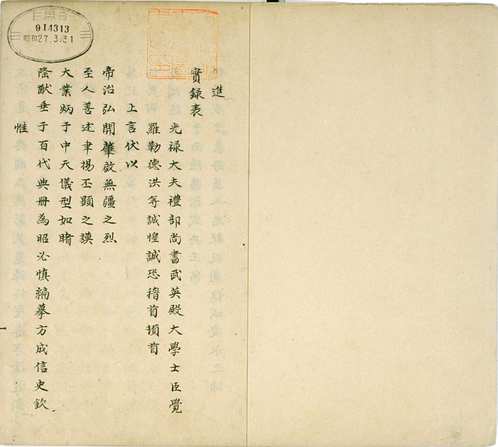 進
實錄表
光祿大夫禮部尚書武英殿大學士臣覺
羅勒德洪等誠惶誠恐稽首頓首
上言伏以
帝治弘開肇啟無疆之烈
至人善述聿揚丕顯之謨
大業炳于中天儀型如睹
陰猷垂于百代典冊為昭必慎編摹方成信史欽
惟
914313
昭和27.3.31